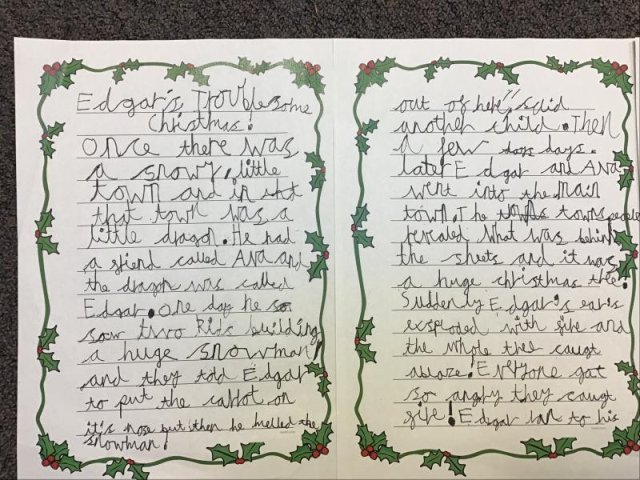 Edgar's Troublesome
Christmas!
Once there was
a snowy, little
town and in
that town was a
little dragon. He had
a friend called Ava and
the dragon was called
Edgar. One day he
saw two kids building
a huge snowman,
and they told Edgar
to put the carrot on
it's nose but then he melled the
snowman!
out of here!" said
another child. Then
a few days.
later Edgar and Ava
went into the main
town. The towns people
revealed what was behind
the sheets and it was
a huge christmas tree!
Suddenly Edgar's ears
exsploded with fire and
the whole tree caugt
ablaze! Everyone got
so angry they caugt
fire! Edgar ran to his